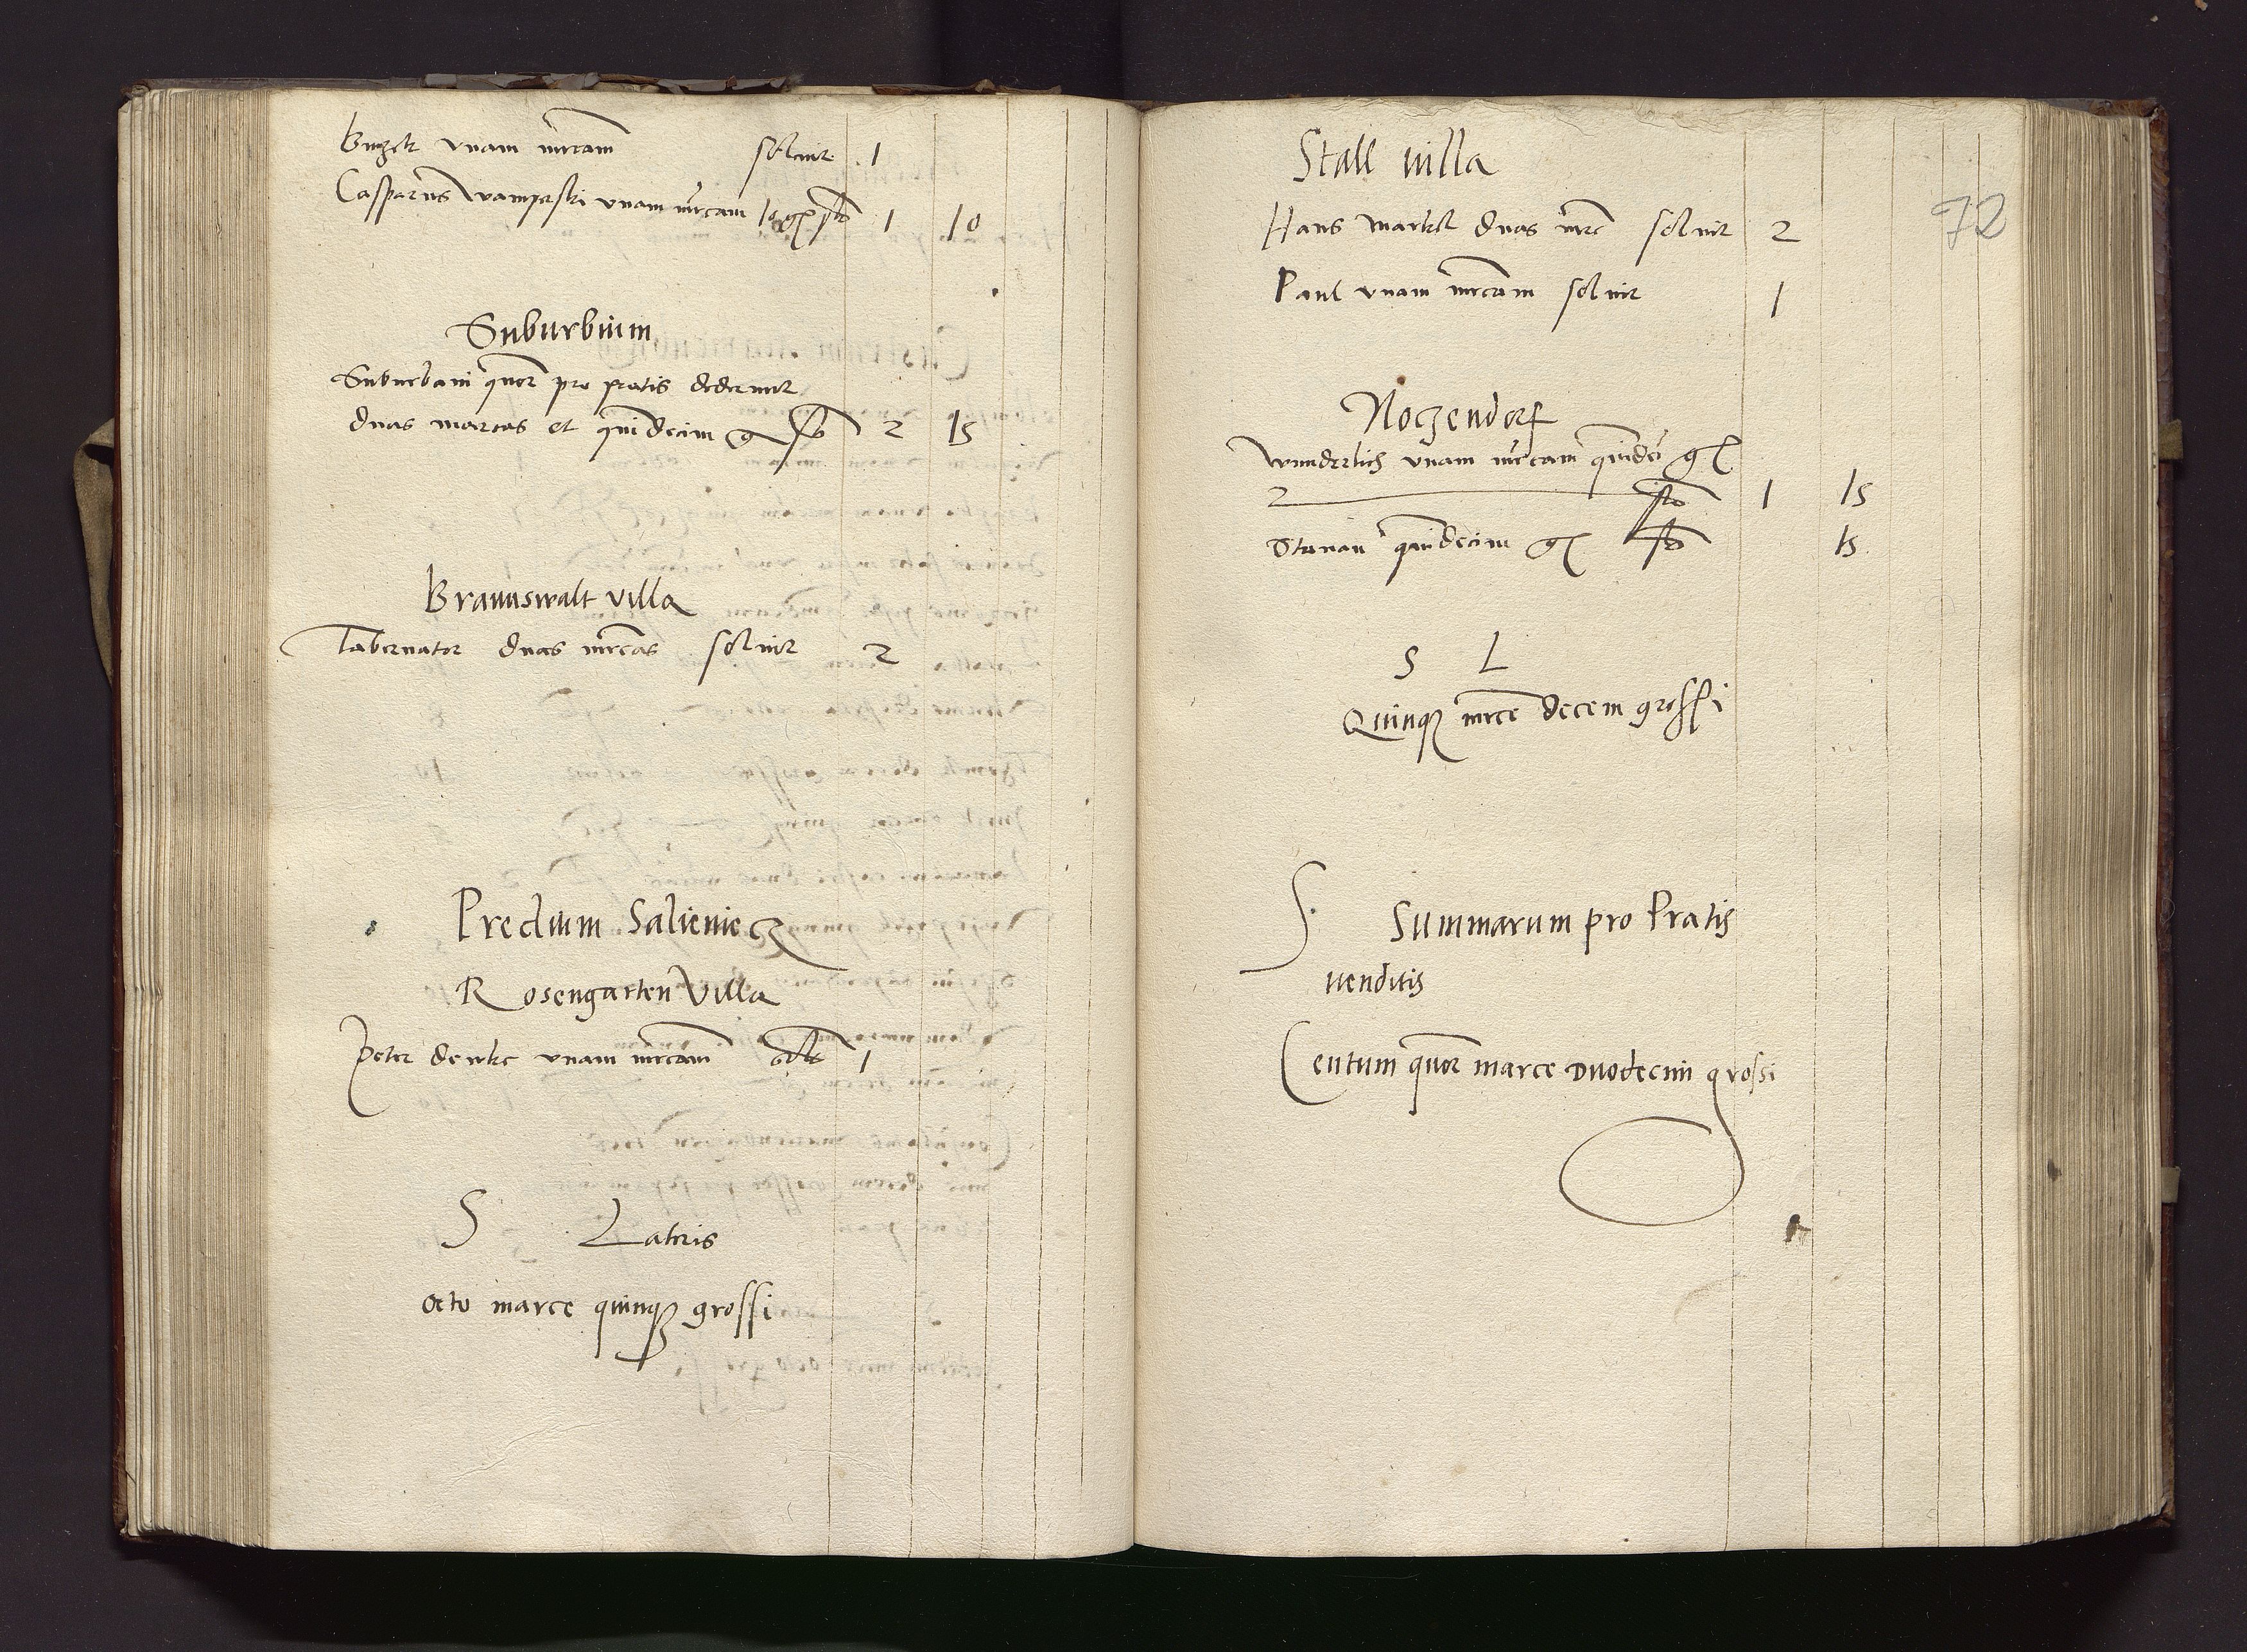 unam mrcam soluit 1
Casparus wampeski unam mrcam 10 gr sol 1 10
Suburbium
Suburbani quor pro pratis dederunt
duas marcas et quindecim g sol 2 15
Braunswalt villa
Tabernator duas mrcas soluit 2
Predium Salieniecz
Rosengarten Villa
Peter denke unam mrcam 1
S Lateris
octo marce quinq grossi
Stall villa
72
Hans markel duas mrc soluit 2
Paul unam mrcam soluit 1
Noczendorf
wunderlich unam mrcam quinde gr
2 sol 1 15
quindecim gr sol 15
S L
Quinq mrce decem grossi
S. Summarum pro Pratis
venditis
Centum quor marce duodecim grossi